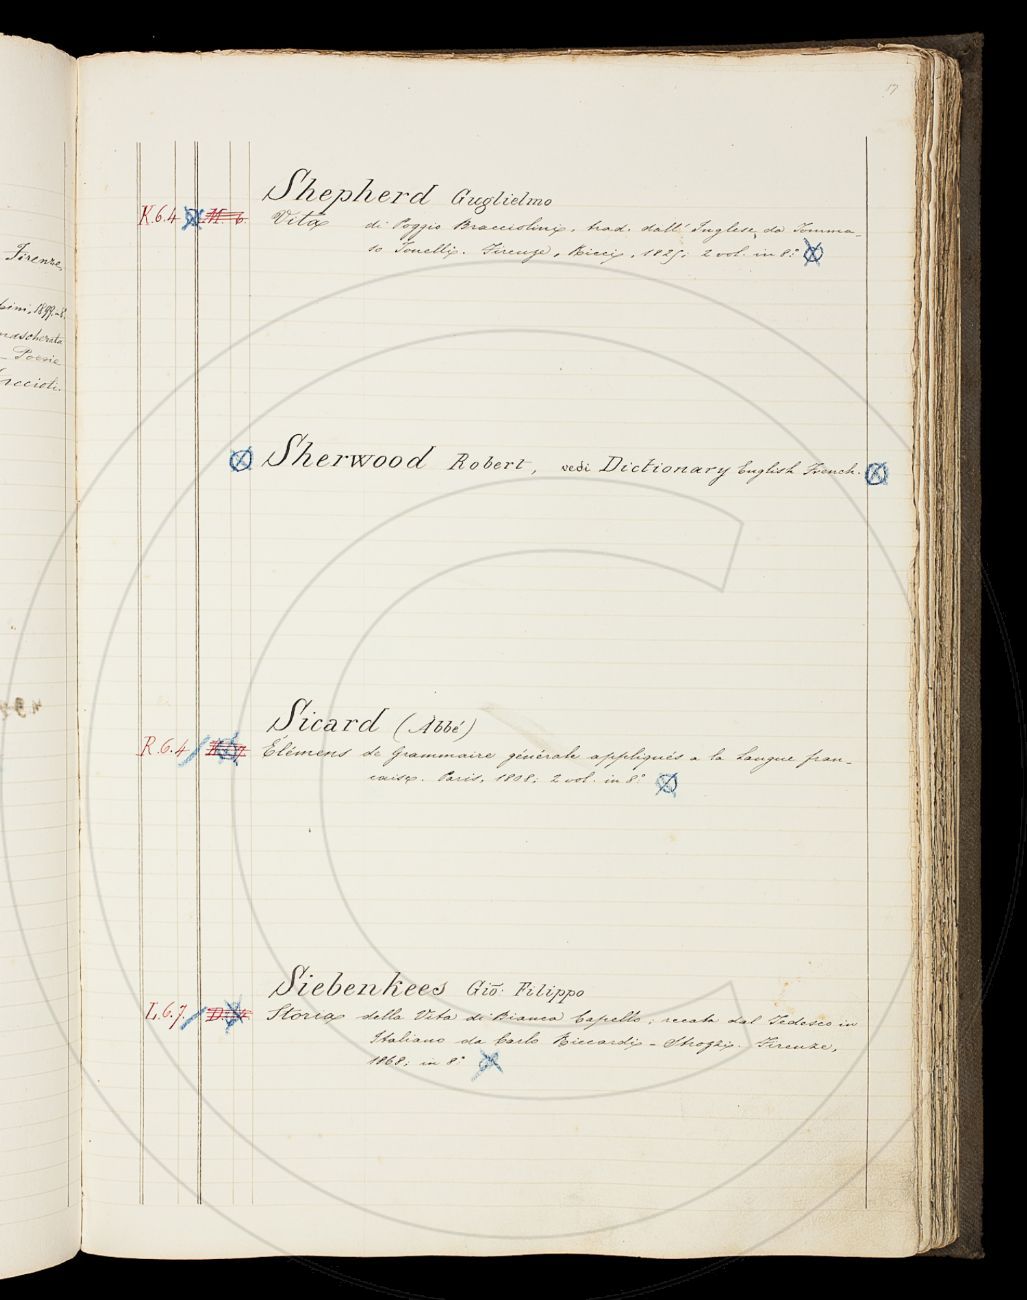 17
Firenze,
1899.-8.
mascherata
- Poesie
Shepherd Guglielmo
K.6.4 H. 6. Vita di Poggio Bracciolini, trad. dall' Inglese da Tomma-
so Tonelli. Firenze, Ricci, 1825; 2 vol. in 8.°
Sherwood Robert, vedi Dictionary English French.
Sicard (Abbé)
R.6.4 Élémens de Grammaire générale appliqués a la Langue fran-
caise. Paris, 1808; 2 vol. in 8.°
Siebenkees Gio. Filippo
L.6.7. Storia della Vita di Bianca Capello; recata dal Tedesco in
Italiano da Carlo Riccardi - Strozzi. Firenze,
1868; in 8.°